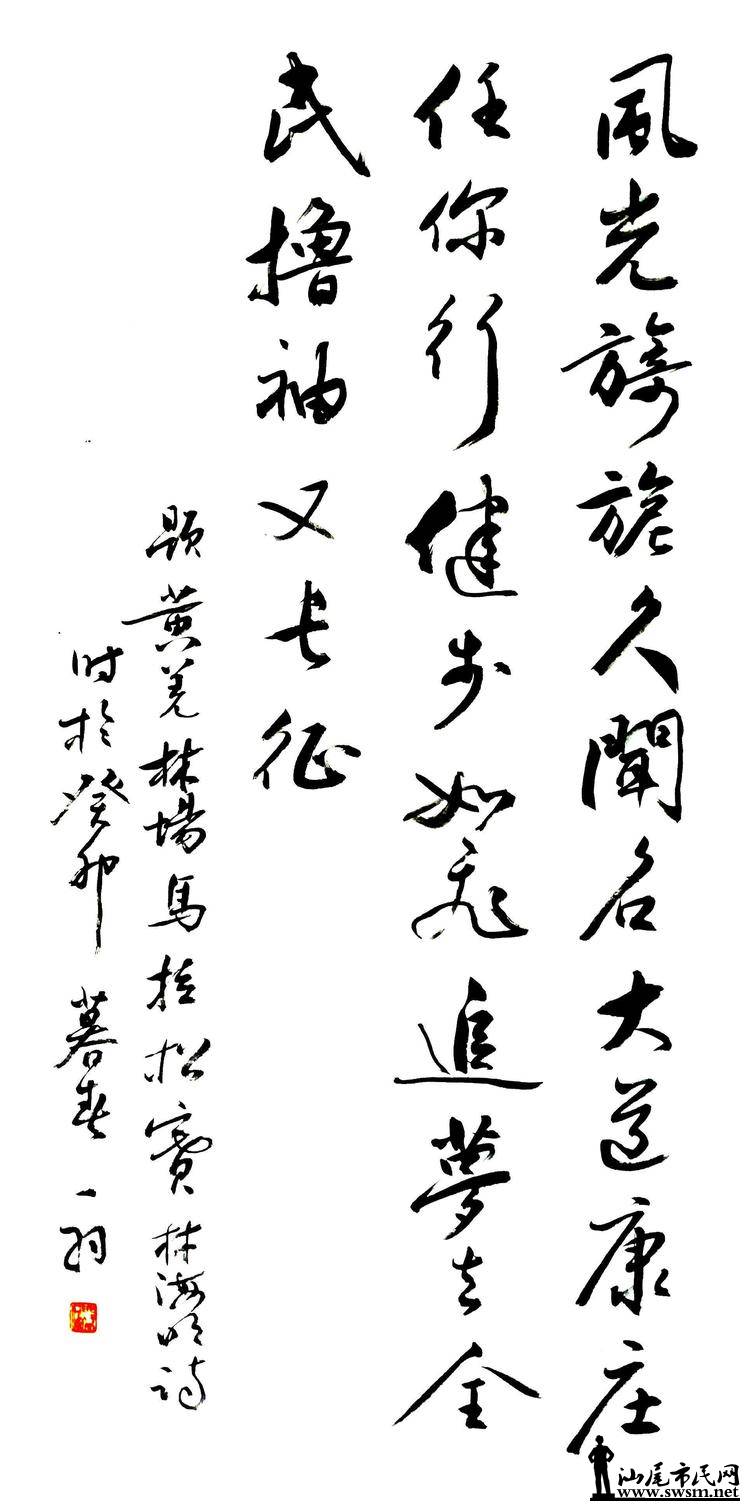 風光旖旎久聞名大道康庄
任你行健步如飛追夢去全
民擼袖又长征
題黄羌林場馬拉松賽林海明詩
时於癸卯暮春一羽
汕尾市民网
www.swsm.net